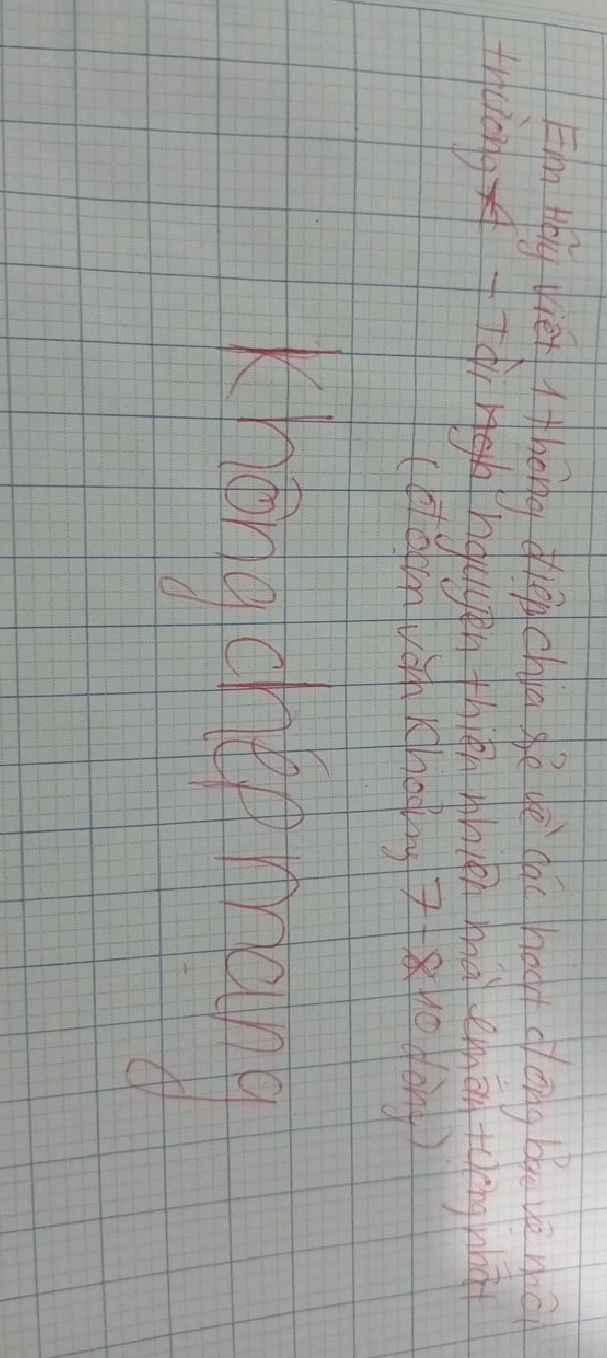 Em hãy viết 1 thông điệp chia sẻ về các hoạt động bảo vệ môi
trường - Tài nguyên thiên nhiên mà em ấn tượng nhất
(đoạn văn khoảng 7-10 dòng)
Không chép mạng